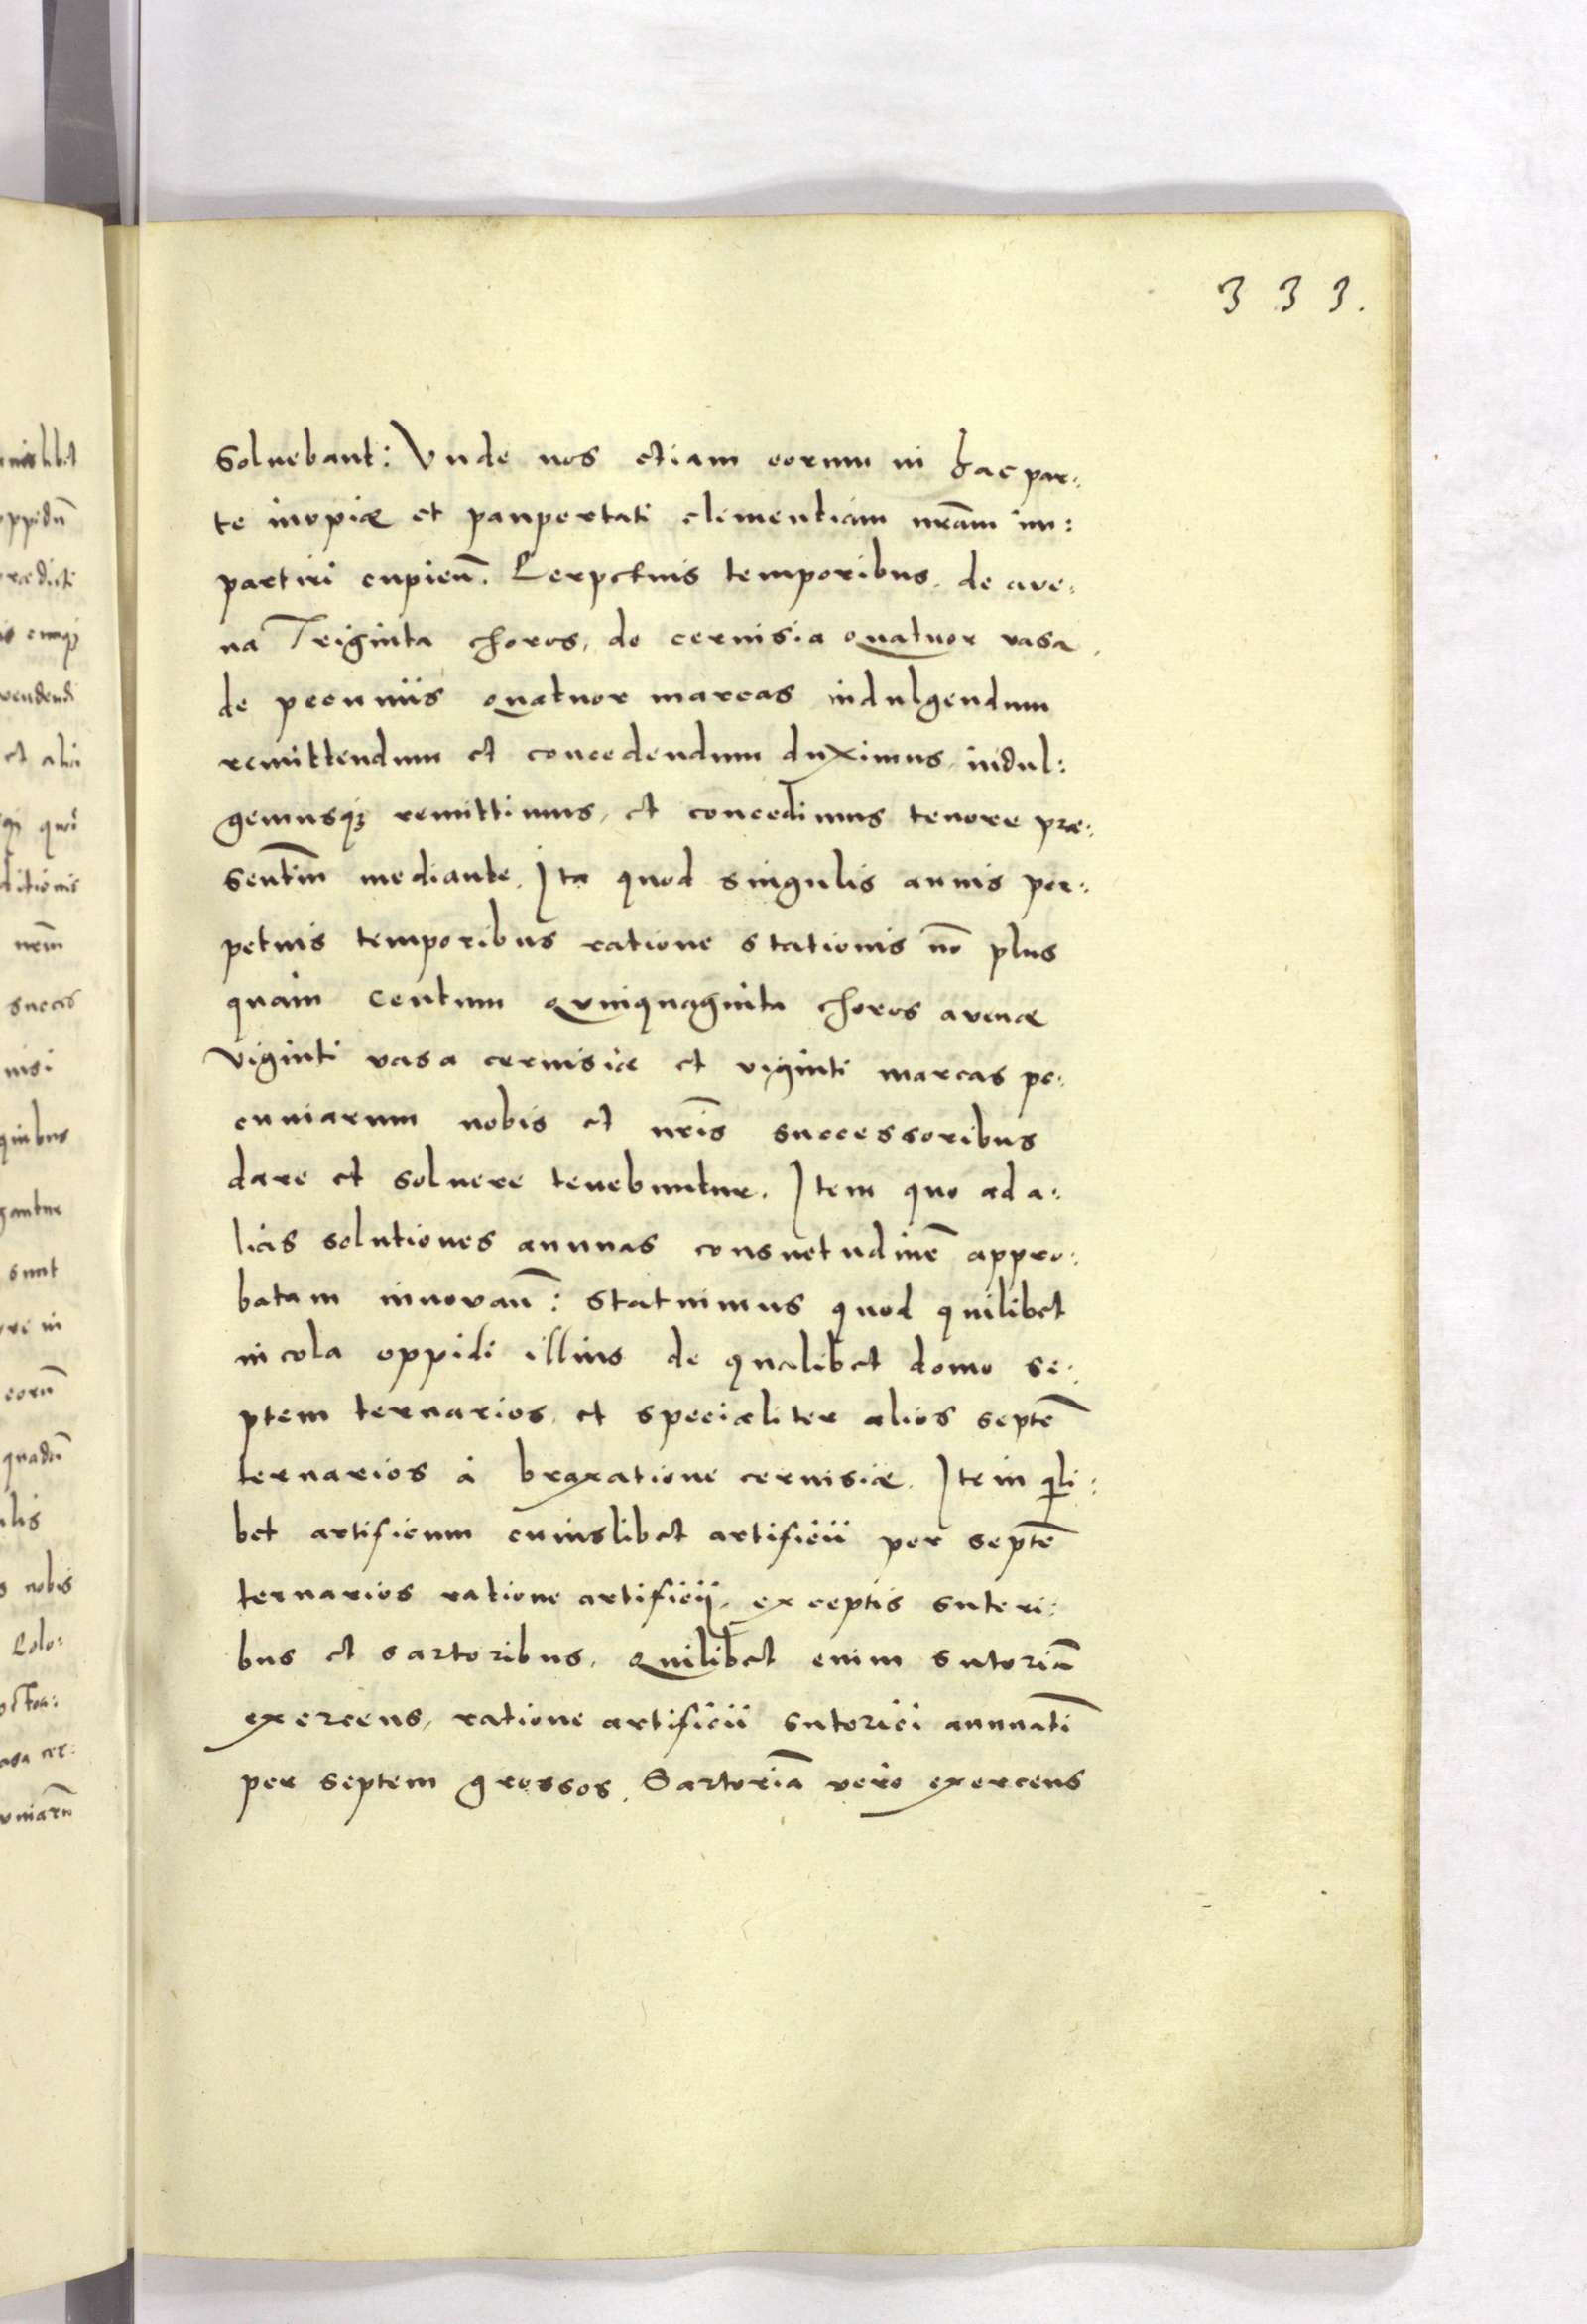 333.
soluebant: Vnde nos etiam eorum in hac par:
te inopiæ et paupertati clementiam nr̃am im:
partiri cupieñ. Perpetuis temporibus, de ave:
na Triginta choros, de ceruisia Quatuor vasa,
de pecuniis Quatuor marcas indulgendum
remittendum et concedendum duximus, indul:
gemusq; remittimus, et concedimus tenore præ:
sentiũ mediante. Ita quod singulis annis per:
petuis temporibus ratione stationis nõ plus
quàm Centum Quinquaginta choros avenæ
viginti vasa ceruisiæ et viginti marcas pe:
cuniarum nobis et nr̃is successoribus
dare et soluere tenebuntur. Item quo ad a:
lias solutiones annuas consuetudinẽ appro:
batam innovañ: statuimus quod quilibet
incola oppidi illius de qualibet domo se:
ptem ternarios, et specialiter alios septẽ
ternarios à braxatione ceruisiæ. Item q̃li:
bet artificum cuiuslibet artificii per septẽ
ternarios ratione artificij, exceptis sutori:
bus et sartoribus, Quilibet enim sutoriã
exercens, ratione artificii sutorici annuatĩ
per septem grossos, Sartoriã vero exercens